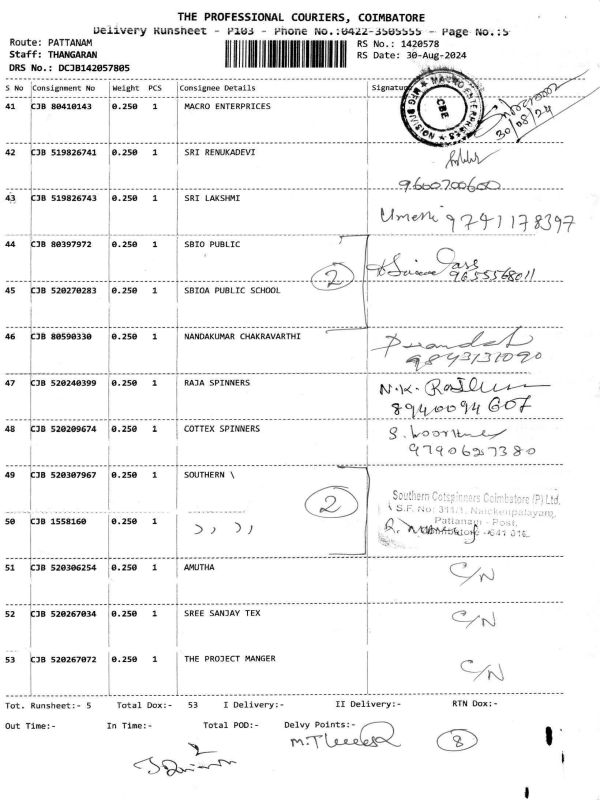 THE PROFESSIONAL COURIERS, COIMBATORE
Delivery Runsheet - P103 - Phone No.:0422-3505555 - Page No.:5
Route: PATTANAM RS No.: 1420578
Staff: THANGARAN RS Date: 30-Aug-2024
DRS No.: DCJB142057805
S No Consignment No Weight PCS Consignee Details Signature
41 CJB 80410143 0.250 1 MACRO ENTERPRICES
MACRO ENTERPRISES
CBE
30/08/24
42 CJB 519826741 0.250 1 SRI RENUKADEVI
9600700600
43 CJB 519826743 0.250 1 SRI LAKSHMI
9741178397
44 CJB 80397972 0.250 1 SBIO PUBLIC
2 9655568011
45 CJB 520270283 0.250 1 SBIOA PUBLIC SCHOOL
46 CJB 80590330 0.250 1 NANDAKUMAR CHAKRAVARTHI
9843131090
47 CJB 520240399 0.250 1 RAJA SPINNERS
N.K.
8940094607
48 CJB 520209674 0.250 1 COTTEX SPINNERS
9790627380
49 CJB 520307967 0.250 1 SOUTHERN \
2 Southern Cotspinners Coimbatore (P) Ltd.
S.F. No: 311/1, Naickenpalayam,
50 CJB 1558160 0.250 1 ,, ,,
Pattanam - Post,
641 016.
51 CJB 520306254 0.250 1 AMUTHA C/N
52 CJB 520267034 0.250 1 SREE SANJAY TEX C/N
53 CJB 520267072 0.250 1 THE PROJECT MANGER C/N
Tot. Runsheet:- 5 Total Dox:- 53 I Delivery:- II Delivery:- RTN Dox:-
Out Time:- In Time:- Total POD:- Delvy Points:-
8